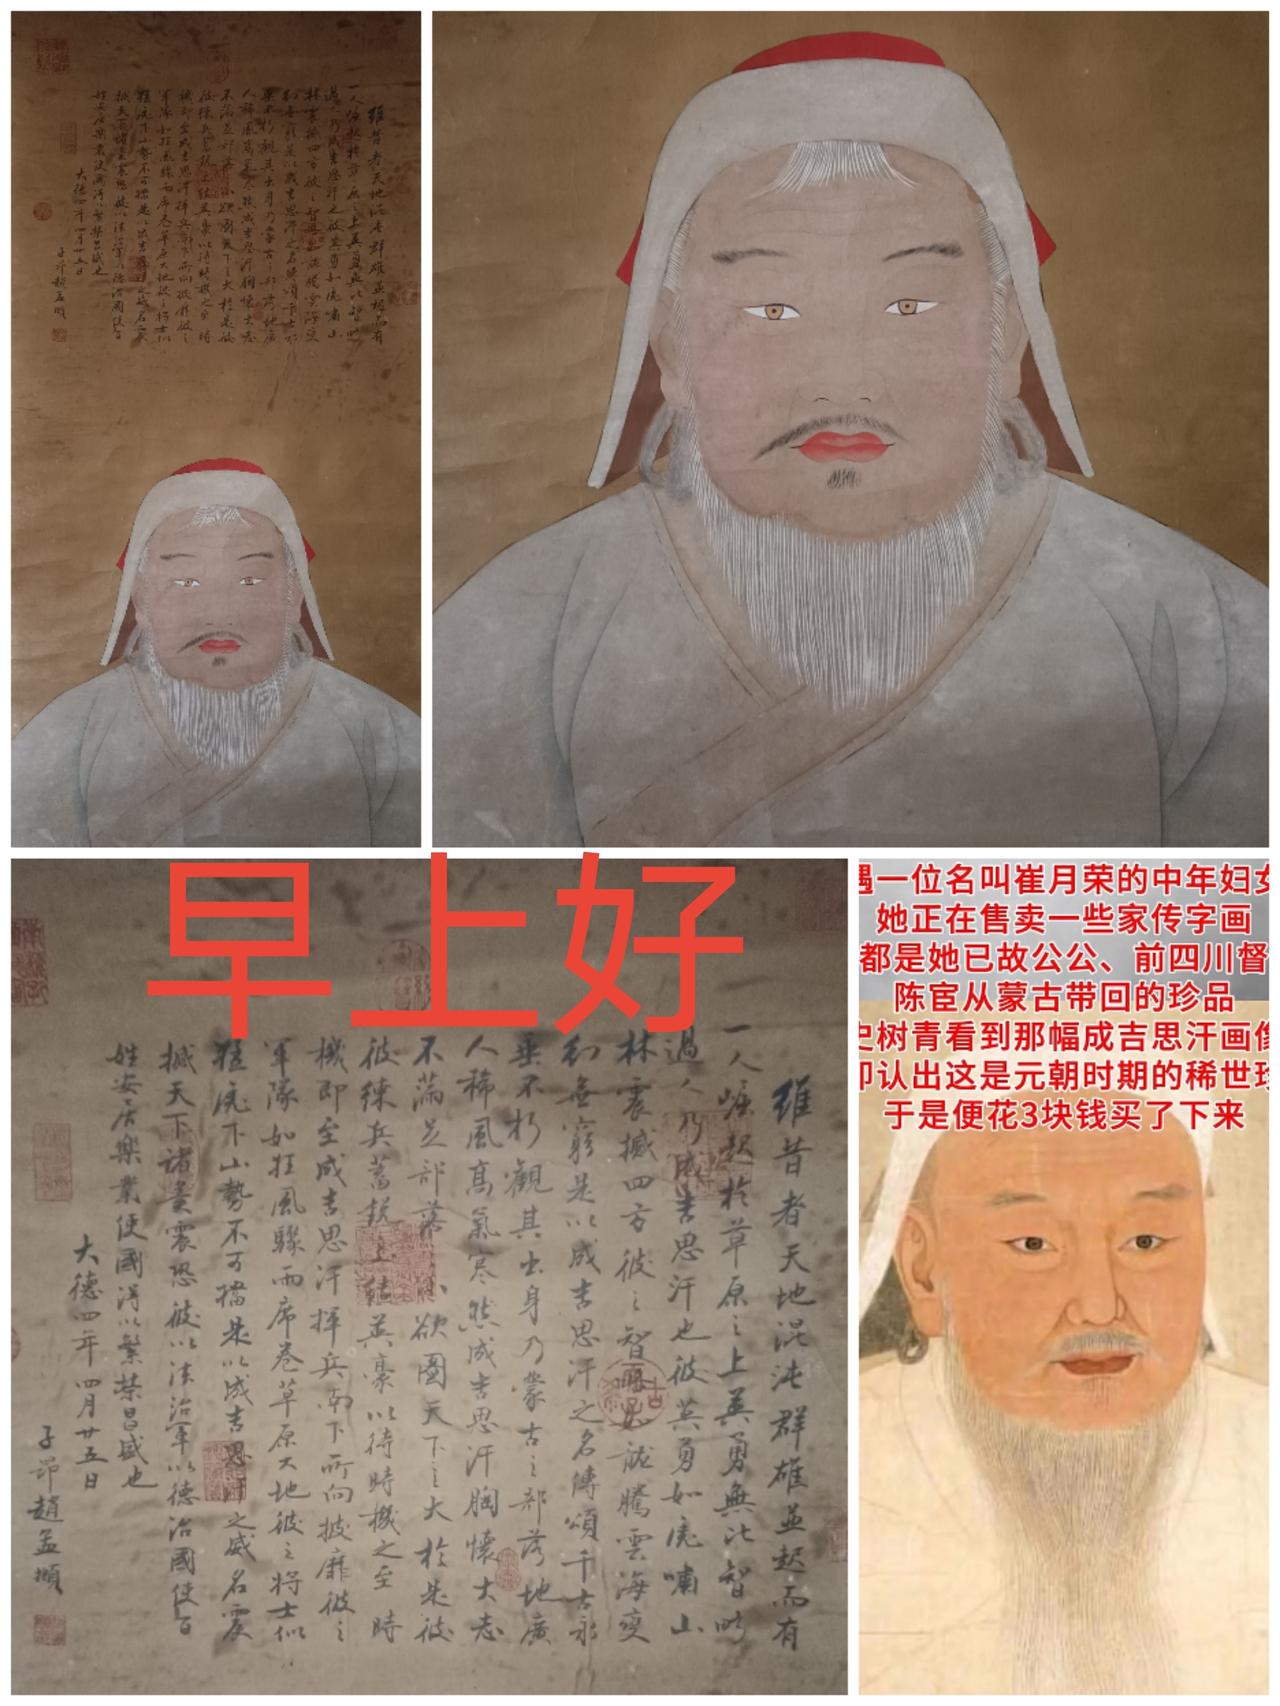 早上好
維昔者天地混沌群雄並起而有
一人崛起於草原之上英勇無比智略
過人乃成吉思汗也彼英勇如虎嘯山
林震撼四方彼之智如龍騰雲海變
幻無窮是以成吉思汗之名傳頌千古永
垂不朽觀其出身乃蒙古之部落地廣
人稀風高氣寒然成吉思汗胸懷大志
不滿足部落小欲圖天下之大於是彼
彼練兵蓄銳上結英豪以待時機之至時
機即至成吉思汗揮兵南下所向披靡彼之
軍隊如狂風驟雨席卷草原大地彼之將士似
猛虎下山勢不可擋是以成吉思汗之威名震
撼天下諸侯震恐彼以法治軍以德治國使百
姓安居樂業使國得以繁榮昌盛也
大德四年四月廿五日
子昂趙孟頫
遇一位名叫崔月荣的中年妇女
她正在售卖一些家传字画
都是她已故公公、前四川督
陈宧从蒙古带回的珍品
史树青看到那幅成吉思汗画像
即认出这是元朝时期的稀世珍
于是便花3块钱买了下来